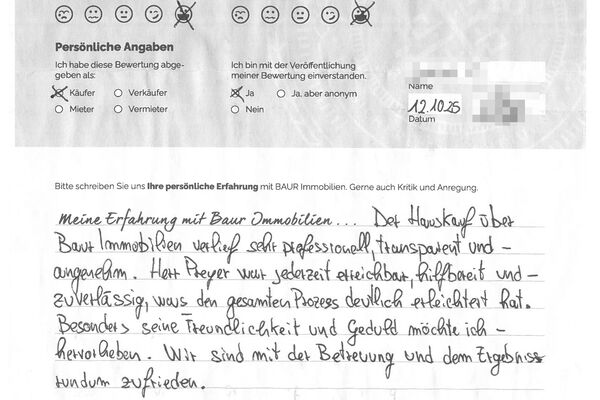 Persönliche Angaben
Ich habe diese Bewertung abge-
geben als:
Käufer
Verkäufer
Mieter
Vermieter
Ich bin mit der Veröffentlichung
meiner Bewertung einverstanden.
Ja
Ja, aber anonym
Nein
Name
12.10.25
Datum
Bitte schreiben Sie uns Ihre persönliche Erfahrung mit BAUR Immobilien. Gerne auch Kritik und Anregung.
Meine Erfahrung mit Baur Immobilien... Der Hauskauf über
Baur Immobilien verlief sehr professionell, transparent und -
angenehm. Herr Preyer war jederzeit erreichbar, hilfbereit und -
zuverlässig, was den gesamten Prozess deutlich erleichtert hat.
Besonders seine Freundlichkeit und Geduld möchte ich -
hervorheben. Wir sind mit der Betreuung und dem Ergebniss
rundum zufrieden.